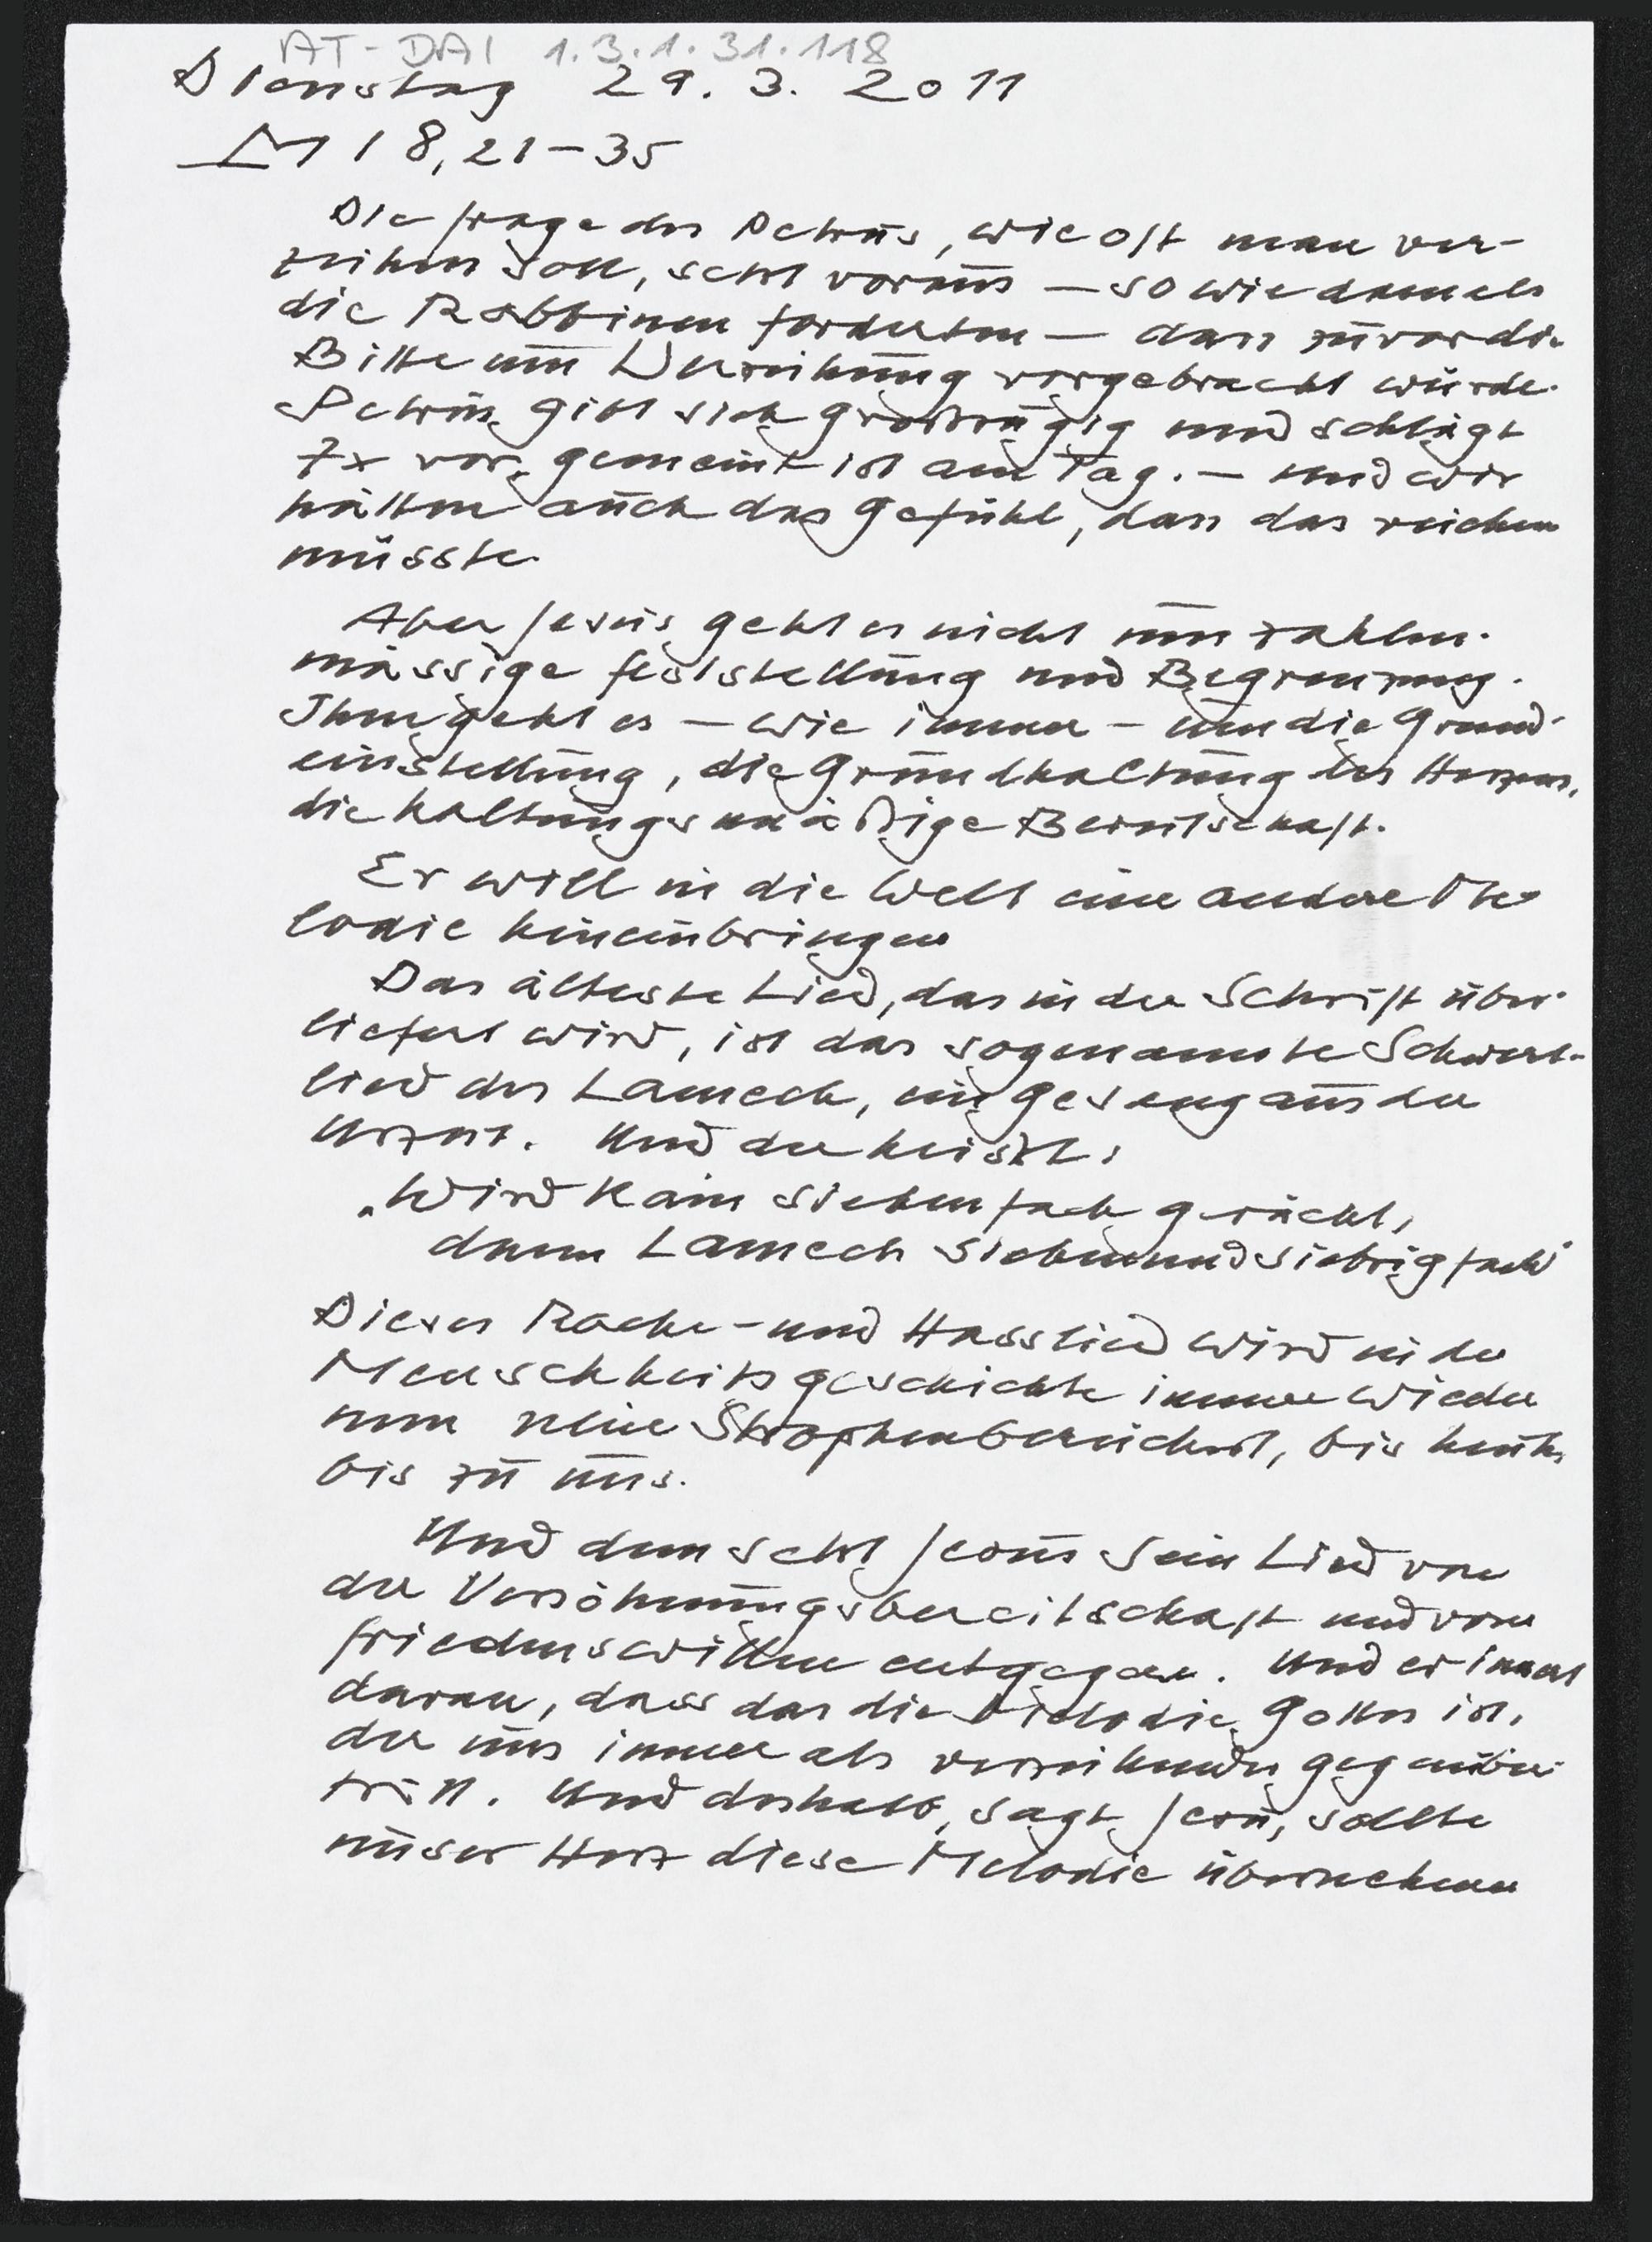 AT-DAI 1.3.1.31.118
Dienstag 29. 3. 2011
M 18,21-35
Die Frage des Petrus, wie oft man ver-
zeihen soll, setzt voraus – so wie damals
die Rabbinen forderten – dass zuvor die
Bitte um Verzeihung vorgebracht würde.
Petrus gibt sich großzügig und schlägt
7x vor, gemeint ist am Tag. – und wir
hätten auch das Gefühl, dass das reichen
müsste.
Aber Jesus geht es nicht um zahlen-
mässige Feststellung und Begrenzung.
Ihm geht es – wie immer – um die Grund-
einstellung, die Grundhaltung des Herzens,
die haltungsmäßige Bereitschaft.
Er will in die Welt eine andere Me-
lodie hineinbringen
Das älteste Lied, das in der Schrift über-
liefert wird, ist das sogenannte Schwert-
lied des Lamech, ein Gesang aus der
Urzeit. Und da heisst:
„Wird Kain siebenfach gerächt,
dann Lamech siebenundsiebzigfach"
Dieses Rache- und Hasslied wird in der
Menschheitsgeschichte immer wieder
um neue Strophen bereichert, bis heute,
bis zu uns.
Und dem setzt Jesus sein Lied von
der Versöhnungsbereitschaft und vom
Friedenswillen entgegen. Und erinnert
daran, dass das die Melodie Gottes ist,
der uns immer als verzeihender gegenüber-
tritt. Und deshalb, sagt Jesus, sollte
unser Herz diese Melodie übernehmen